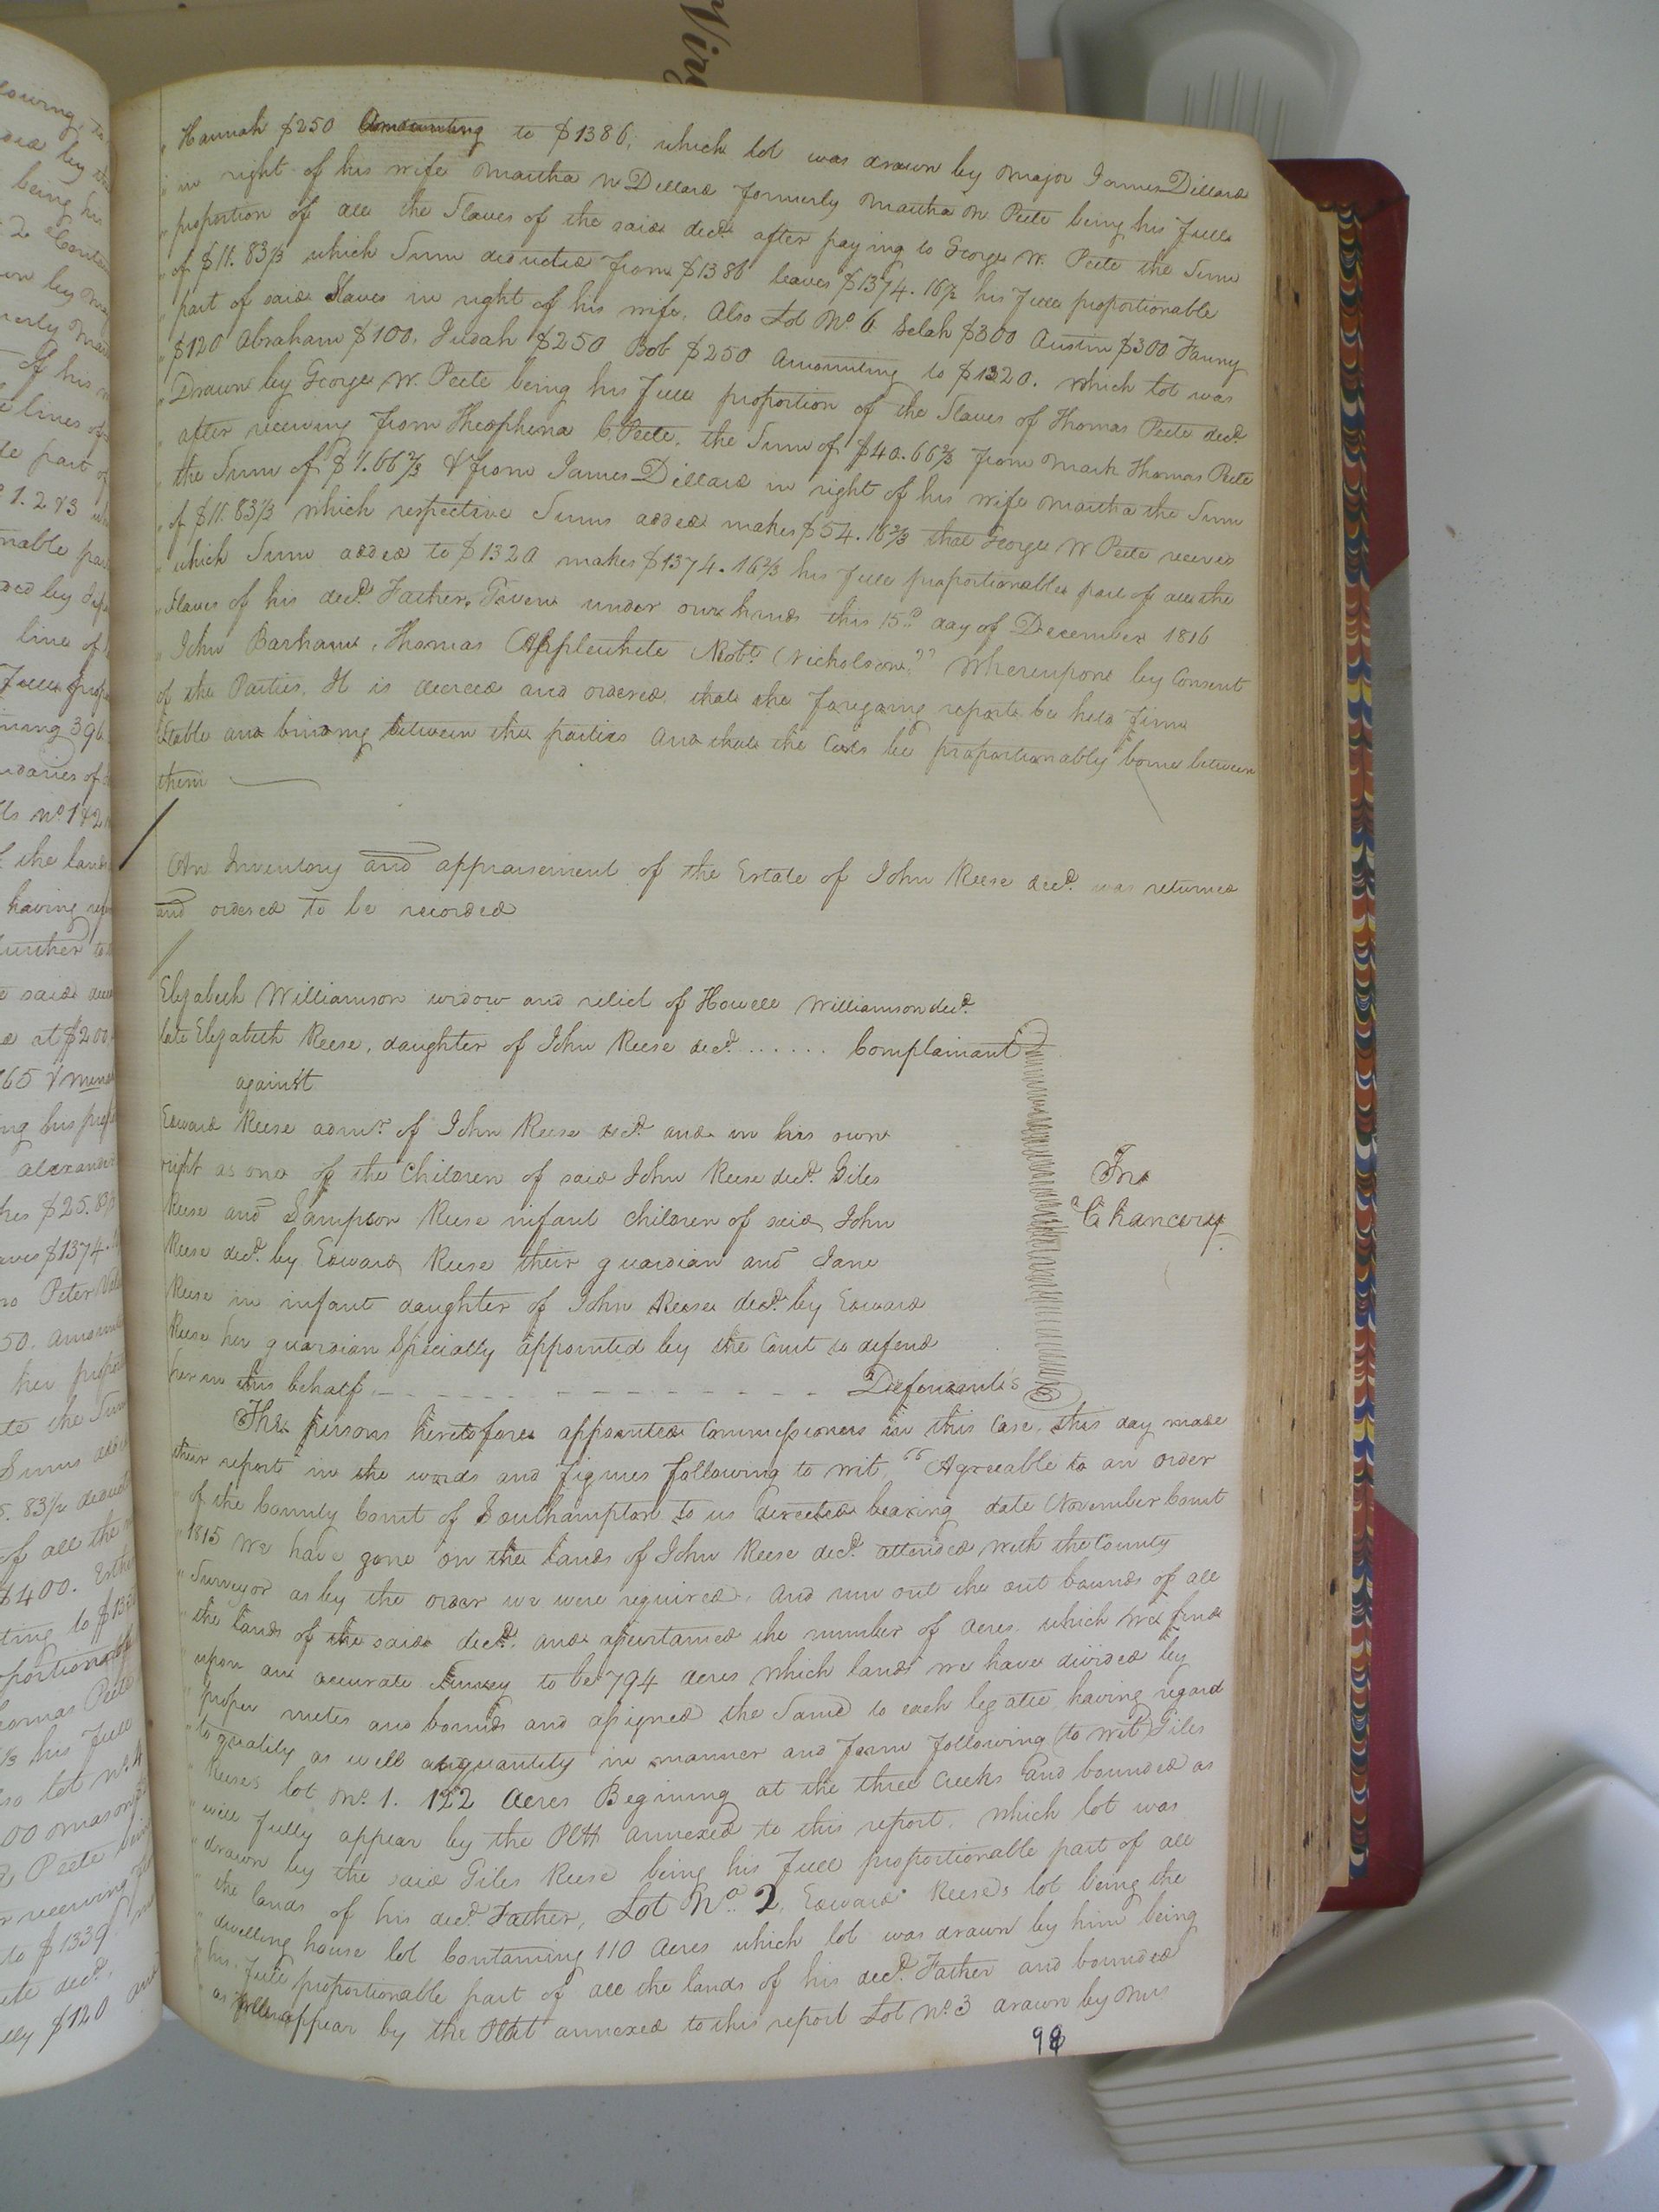 " Hannah $250 Amounting to $1386, which lot was drawn by Major James Dillard
" in right of his wife Martha N Dillard formerly Martha N Peete being his full
" proportion of all the Slaves of the said decd. after paying to George W. Peete the Sum
" of $11.83 1/3 which Sum deducted from $1386 leaves $1374.16 2/3 his full proportionable
" part of said Slaves in right of his wife. Also Lot No. 6 Selah $300 Austin $300 Fanny
" $120 Abraham $100. Judah $250 Bob $250 Amounting to $1320. which lot was
" Drawn by George W. Peete being his full proportion of the Slaves of Thomas Peete decd.
" after receiving from Theophena C. Peete, the Sum of $40.66 2/3 from Mark Thomas Peete
" the Sum of $1.66 2/3 & from James Dillard in right of his wife Martha the Sum
" of $11.83 1/3 which respective Sums added makes $54.16 2/3 that George W Peete received
" which Sum added to $1320 makes $1374.16 2/3 his full proportionable part of all the
" Slaves of his decd. Father. Given under our hands this 15th day of December 1816
" John Barham, Thomas Applewhite Robt. Nicholson." Whereupon by Consent
of the Parties, It is decreed and ordered, that the foregoing report be held firm
Stable and binding between the parties and that the Costs be proportionably borne between
them
An Inventory and appraisement of the Estate of John Reese decd. was returned
and ordered to be recorded
Elizabeth Williamson widow and relict of Howell Williamson decd.
late Elizabeth Reese, daughter of John Reese decd. ...... Complainant
against
Edward Reese admr. of John Reese decd. and in his own
right as one of the Children of said John Reese decd. Giles
Reese and Sampson Reese infant children of said John
Reese decd. by Edward Reese their guardian and Jane
Reese in infant daughter of John Reese decd. by Edward
Reese her guardian Specially appointed by the Court to defend
her in this behalf. - - - - - - - - - - - - Defendants
In
Chancery.
The persons heretofore appointed Commissioners in this Case, this day made
their report in the words and figures following to wit, "Agreeable to an order
" of the County Court of Southampton to us directed bearing date November Court
" 1815 We have gone on the lands of John Reese decd. attended with the County
" Surveyor as by the order we were required, and run out the out bounds of all
" the lands of the said decd. and ascertained the number of acres which we find
" upon an accurate Survey to be 794 acres which lands we have divided by
" proper metes and bounds and assigned the Same to each legatee having regard
" to quality as well as quantity in manner and form following (to wit) Giles
" Reeses lot No. 1. 122 Acres Begining at the three Creeks and bounded as
" will fully appear by the Platt annexed to this report, which lot was
" drawn by the said Giles Reese being his full proportionable part of all
" the lands of his decd. Father, Lot No. 2. Edward Reeses lot being the
" dwelling house lot Containing 110 Acres which lot was drawn by him being
" his full proportionable part of all the lands of his decd. Father and bounded
" as will appear by the Platt annexed to this report Lot No. 3 drawn by Mrs
98